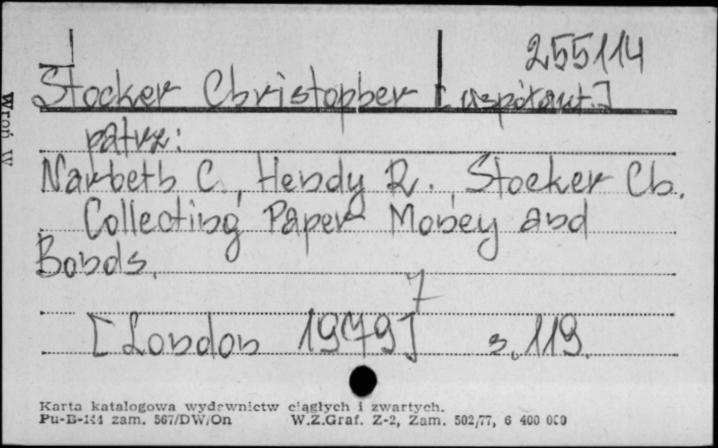 255114
Stocker Christopher [współaut.]
patrz:
Narbeth C., Hendy R., Stocker Ch.
Collecting Paper Money and
Bonds.
7
[London 1979] s. 119.
Karta katalogowa wydawnictw ciągłych i zwartych.
Pu-B-144 zam. 567/DW/On W.Z.Graf. Z-2, Zam. 502/77, 6 400 000
Wroń W